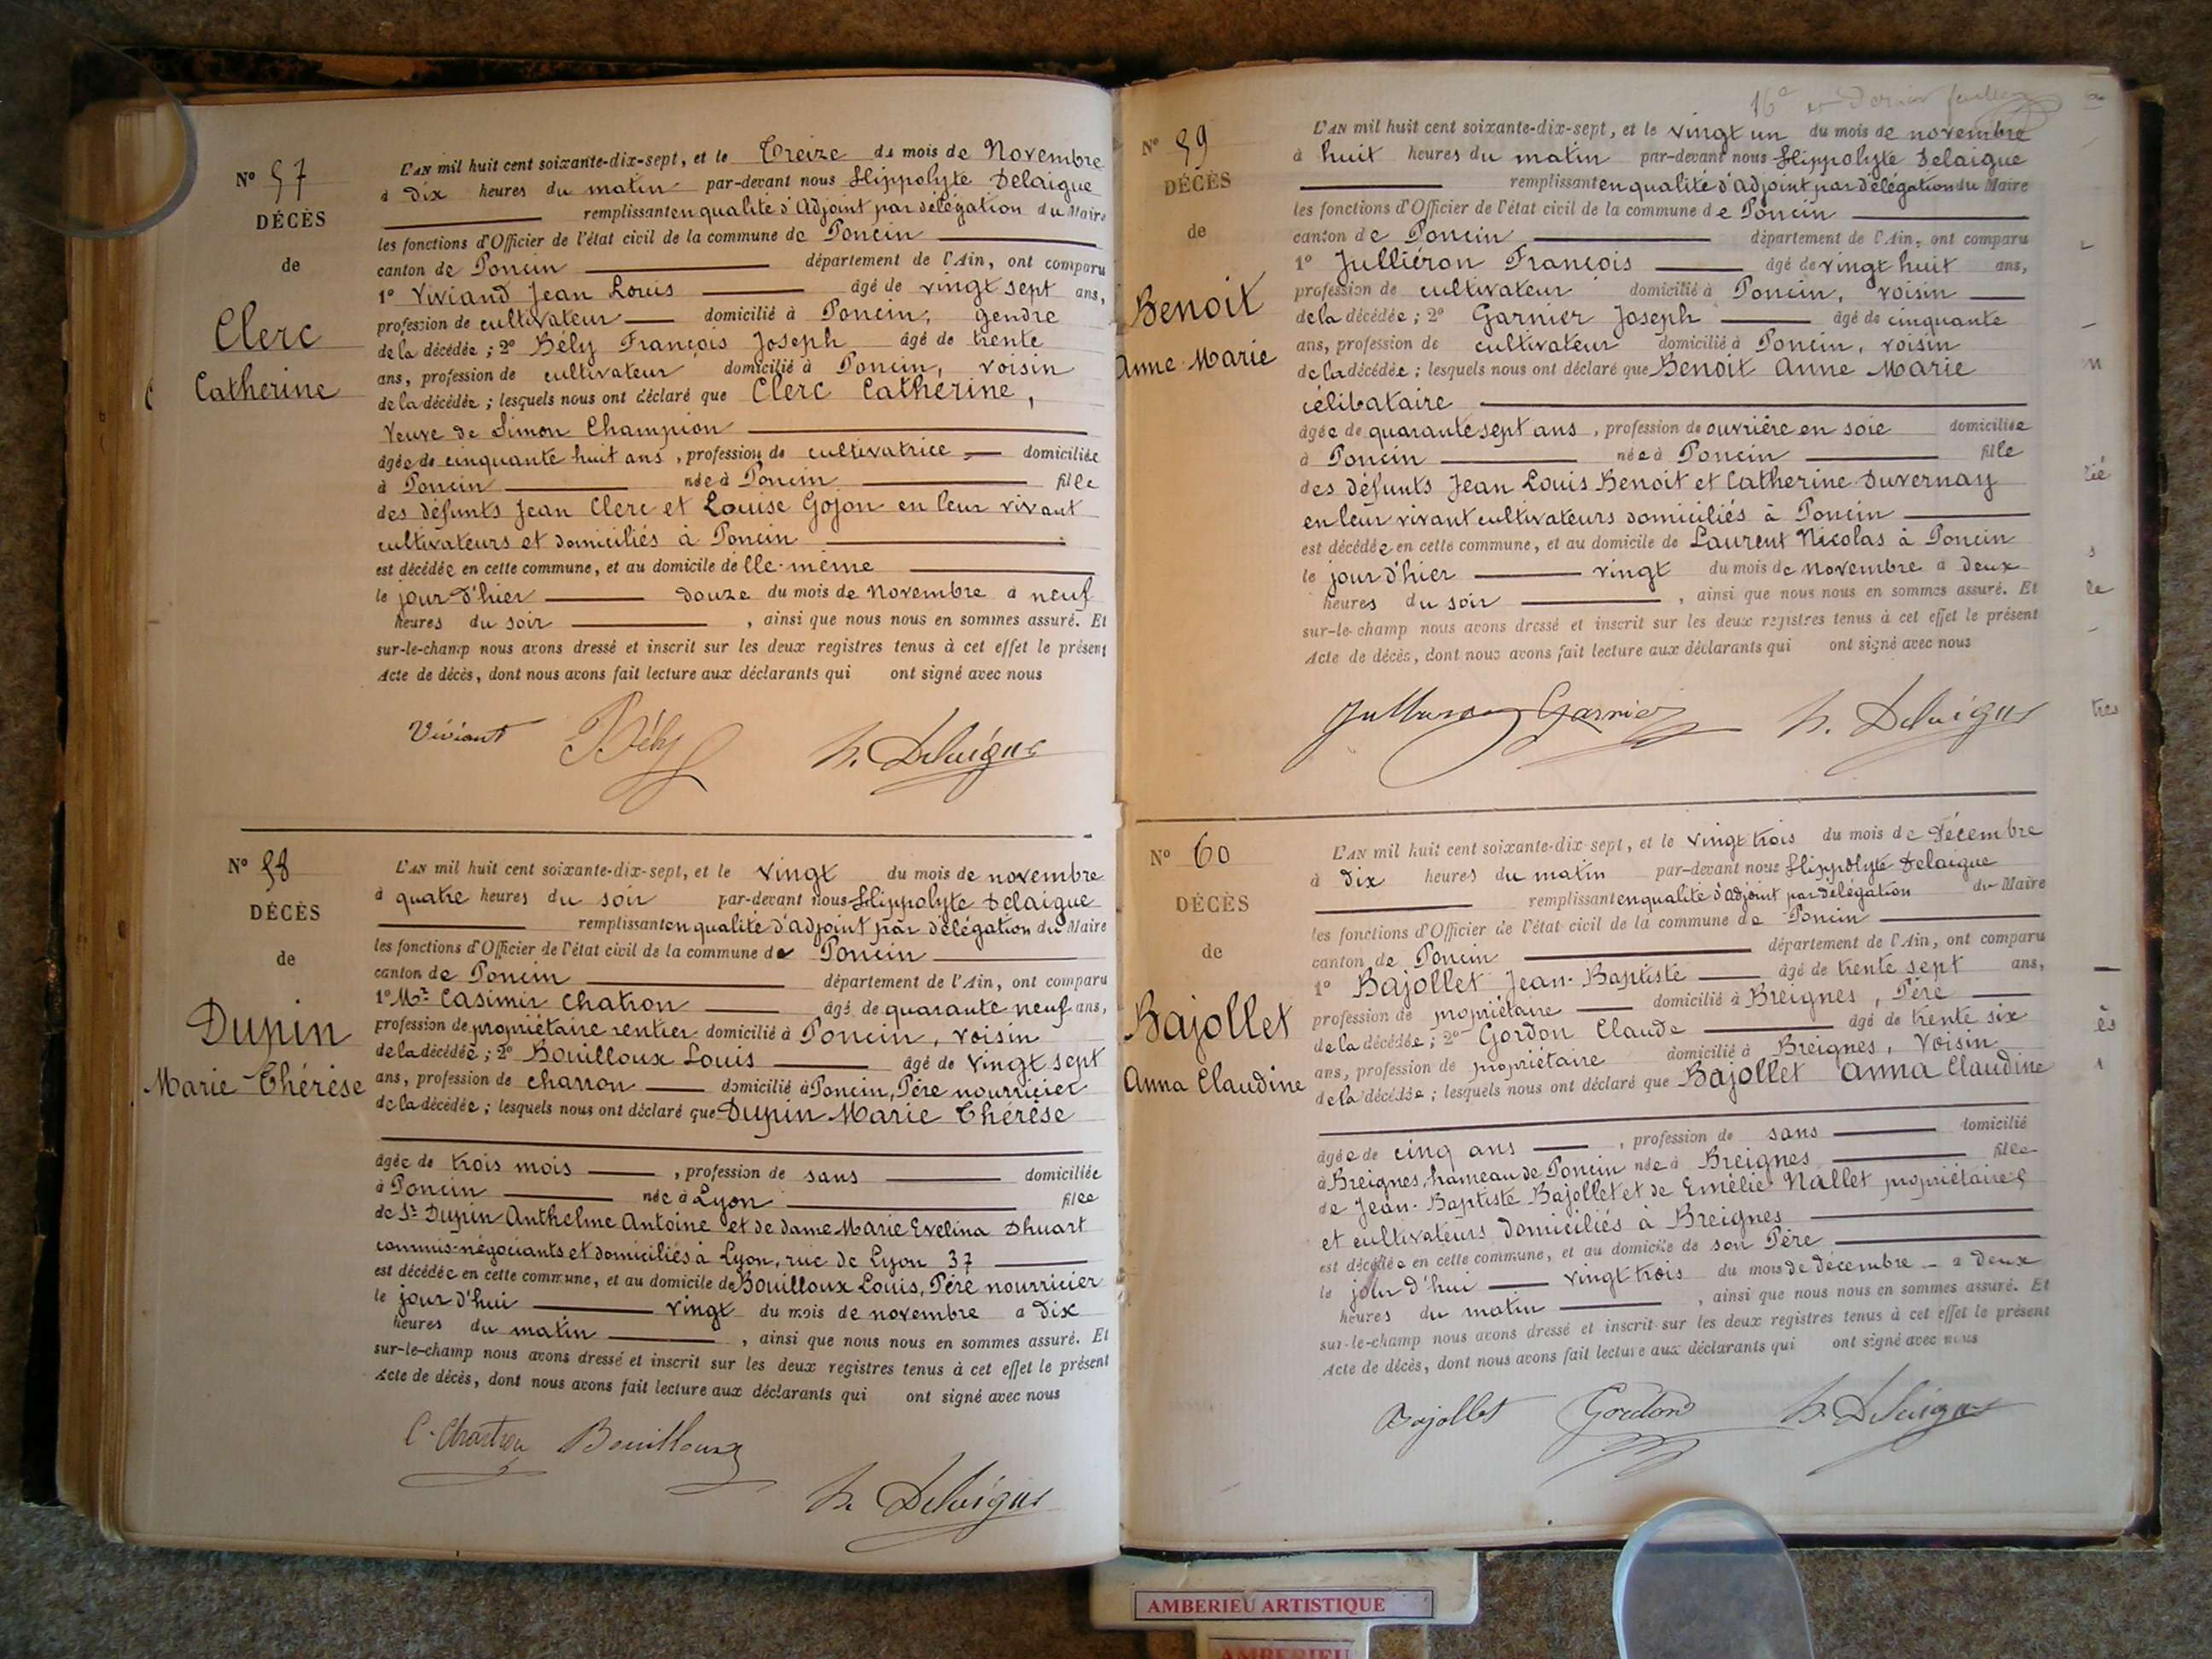 N° 57
DÉCÈS
de
Clerc
Catherine
L'AN mil huit cent soixante-dix-sept, et le Treize du mois de Novembre
à dix heures du matin par-devant nous Hippolyte Delaigue
remplissant en qualité d'Adjoint par délégation du Maire
les fonctions d'Officier de l'état civil de la commune de Poncin
canton de Poncin département de l'Ain, ont comparu
1° Viviand Jean Louis âgé de vingt sept ans,
profession de cultivateur domicilié à Poncin, gendre
de la décédée ; 2° Bély François Joseph âgé de trente
ans, profession de cultivateur domicilié à Poncin, voisin
de la décédée ; lesquels nous ont déclaré que Clerc Catherine,
Veuve de Simon Champion
âgée de cinquante huit ans, profession de cultivatrice domiciliée
à Poncin née à Poncin fille
des défunts Jean Clerc et Louise Gojon en leur vivant
cultivateurs et domiciliés à Poncin
est décédée en cette commune, et au domicile de elle-même
le jour d'hier douze du mois de Novembre à neuf
heures du soir, ainsi que nous nous en sommes assuré. Et
sur-le-champ nous avons dressé et inscrit sur les deux registres tenus à cet effet le présent
Acte de décès, dont nous avons fait lecture aux déclarants qui ont signé avec nous
Viviant Bély h. Delaigue
N° 58
DÉCÈS
de
Dupin
Marie Thérèse
L'AN mil huit cent soixante-dix-sept, et le vingt du mois de novembre
à quatre heures du soir par-devant nous Hippolyte Delaigue
remplissant en qualité d'adjoint par délégation du Maire
les fonctions d'Officier de l'état civil de la commune de Poncin
canton de Poncin département de l'Ain, ont comparu
1° Mr Casimir Chatron âgé de quarante neuf ans,
profession de propriétaire rentier domicilié à Poncin, voisin
de la décédée ; 2° Bouilloux Louis âgé de vingt sept
ans, profession de charron domicilié à Poncin, Père nourricier
de la décédée ; lesquels nous ont déclaré que Dupin Marie Thérèse
âgée de trois mois, profession de sans domiciliée
à Poncin née à Lyon fille
de Sr Dupin Anthelme Antoine et de dame Marie Evelina Dhuart
commis-négociants et domiciliés à Lyon, rue de Lyon 37
est décédée en cette commune, et au domicile de Bouilloux Louis, Père nourricier
le jour d'hui vingt du mois de novembre à dix
heures du matin, ainsi que nous nous en sommes assuré. Et
sur-le-champ nous avons dressé et inscrit sur les deux registres tenus à cet effet le présent
Acte de décès, dont nous avons fait lecture aux déclarants qui ont signé avec nous
C. Chatron Bouilloux
h. Delaigue
16e et Dernier feuillet
N° 59
DÉCÈS
de
Benoit
Anne Marie
L'AN mil huit cent soixante-dix-sept, et le vingt un du mois de novembre
à huit heures du matin par-devant nous Hippolyte Delaigue
remplissant en qualité d'adjoint par délégation du Maire
les fonctions d'Officier de l'état civil de la commune de Poncin
canton de Poncin département de l'Ain, ont comparu
1° Julliéron François âgé de vingt huit ans,
profession de cultivateur domicilié à Poncin, voisin
de la décédée ; 2° Garnier Joseph âgé de cinquante
ans, profession de cultivateur domicilié à Poncin, voisin
de la décédée ; lesquels nous ont déclaré que Benoit Anne Marie
célibataire
âgée de quarante sept ans, profession de ouvrière en soie domiciliée
à Poncin née à Poncin fille
des défunts Jean Louis Benoit et Catherine Duvernay
en leur vivant cultivateurs domiciliés à Poncin
est décédée en cette commune, et au domicile de Laurent Nicolas à Poncin
le jour d'hier vingt du mois de novembre à deux
heures du soir, ainsi que nous nous en sommes assuré. Et
sur-le-champ nous avons dressé et inscrit sur les deux registres tenus à cet effet le présent
Acte de décès, dont nous avons fait lecture aux déclarants qui ont signé avec nous
Garnier h. Delaigue
N° 60
DÉCÈS
de
Bajollet
Anna Claudine
L'AN mil huit cent soixante-dix-sept, et le vingt trois du mois de Décembre
à dix heures du matin par-devant nous Hippolyte Delaigue
remplissant en qualité d'adjoint par délégation du Maire
les fonctions d'Officier de l'état civil de la commune de Poncin
canton de Poncin département de l'Ain, ont comparu
1° Bajollet Jean-Baptiste âgé de trente sept ans,
profession de propriétaire domicilié à Breignes, Père
de la décédée ; 2° Gordon Claude âgé de trente six
ans, profession de propriétaire domicilié à Breignes, Voisin
de la décédée ; lesquels nous ont déclaré que Bajollet Anna Claudine
âgée de cinq ans, profession de sans domicilié
à Breignes, hameau de Poncin née à Breignes fille
de Jean-Baptiste Bajollet et de Emélie Nallet propriétaires
et cultivateurs domiciliés à Breignes
est décédée en cette commune, et au domicile de son Père
le jour d'hui vingt trois du mois de décembre à deux
heures du matin, ainsi que nous nous en sommes assuré. Et
sur-le-champ nous avons dressé et inscrit sur les deux registres tenus à cet effet le présent
Acte de décès, dont nous avons fait lecture aux déclarants qui ont signé avec nous
Bajollet Gordon h. Delaigue
AMBERIEU ARTISTIQUE
AMBERIEU